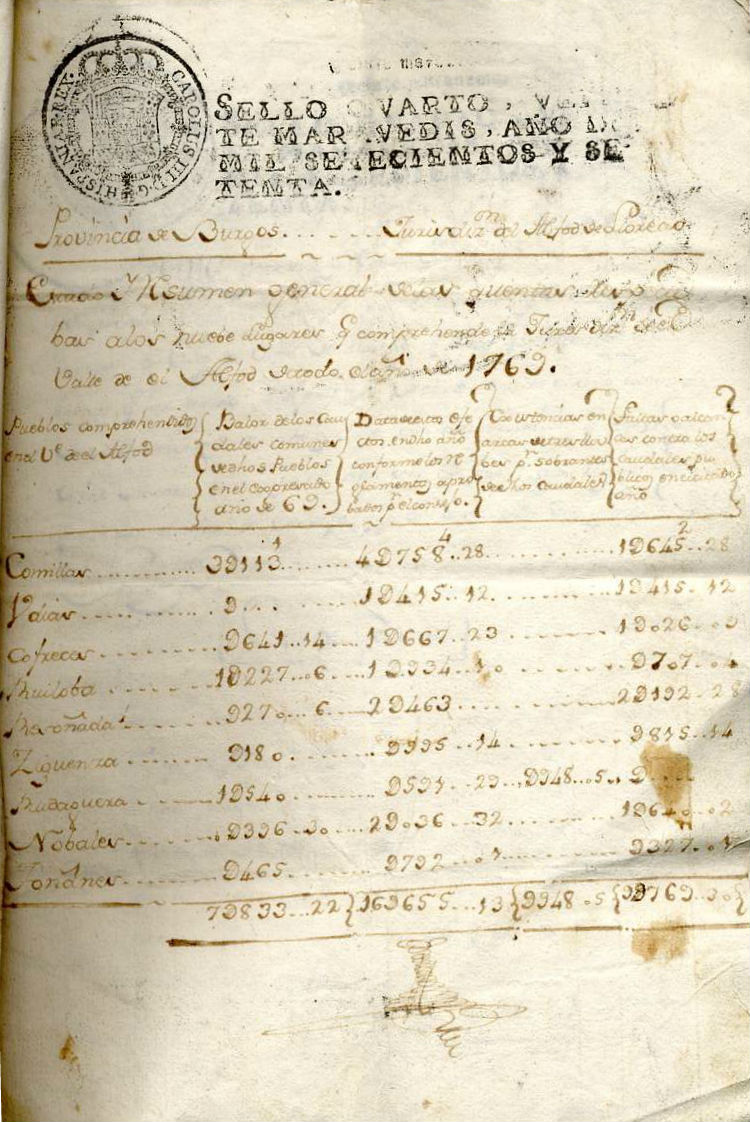 CAROLUS III D.G. HISPANIAR. REX.
SELLO QVARTO, VEI
TE MARAVEDIS, AÑO DE
MIL SETECIENTOS Y SE
TENTA.
Provincia de Burgos. Jurisdizn. del Alfod de Lloredo
Estado y Resumen general de las quentas
bas a los nuebe Lugares q comprehende la Jurisdizn. de el
Valle de el Alfod de todo el año de 1769.
Pueblos comprehendidos en el Ve. de el Alfod
Balor de los Caudales comunes de dhos Pueblos en el expresado año de 69.
Data de gastos efectos en dho año conforme los reglamentos aprobados pr. el consejo.
Existencias en arcas de tres llabes pr. sobrantes de dhos Caudales
Faltas o alcances contra los caudales publicos en citado año
Comillas 3D113 4D758..28 1D645..28
D... 1D415..12 1D415..12
Cofreces D641..14 1D667..23 1D026..09
Ruiloba 1D227..06 1D934..10 D707..04
D270..6 2D463 2D192..28
Ziguenza D180. D995..14 D815..14
Rudaguera 1D540 D591..29 D948..05 D...
Nobales D396..30 2D036..32 1D640..02
Toñanes D465 D792..01 D327..01
7D833..22 16D655..13 D948..05 9D769..30